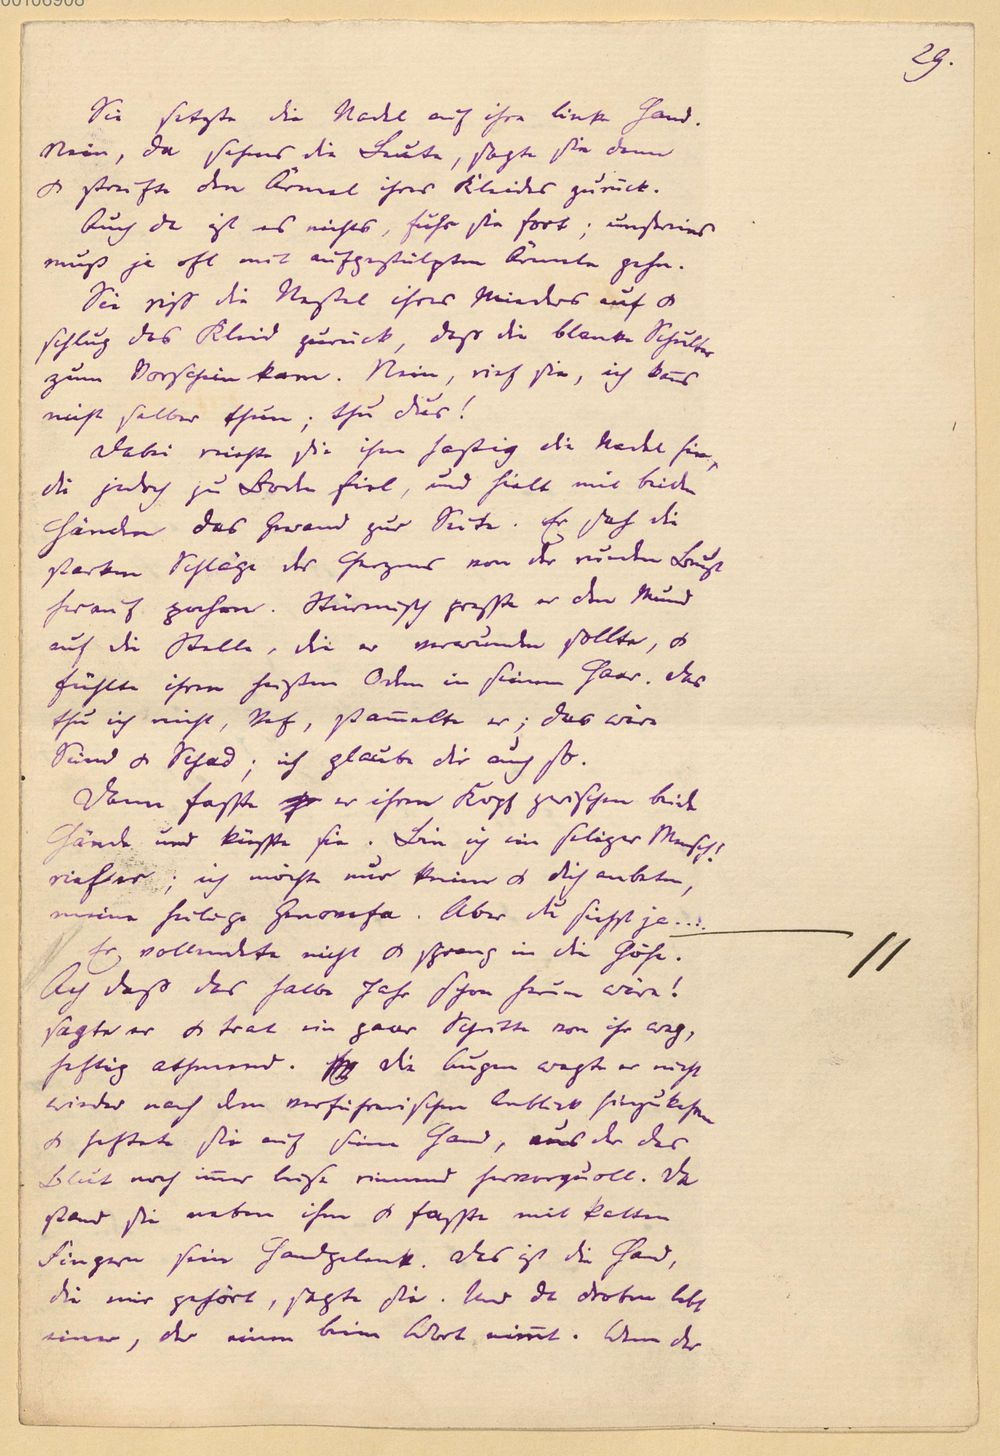 60106908
29.
Sie setzte die Nadel auf ihre linke Hand.
Nein, da sehns die Leute, sagte sie dann
& streifte den Ärmel ihres Kleides zurück.
Auch da ist es nichts, fuhr sie fort; unsereins
muß ja oft mit aufgestülpten Ärmeln gehn.
Sie riß die Nestel ihres Mieders auf &
schlug das Kleid zurück, daß die blanke Schulter
zum Vorschein kam. Nein, rief sie, ich kanns
nicht selber thun; thu dus!
Dabei reichte sie ihm hastig die Nadel hin,
die jedoch zu Boden fiel, und hielt mit beiden
Händen das Gewand zur Seite. Er sah die
starken Schläge des Herzens von der runden Brust
herauf pochen. Stürmisch presste er den Mund
auf die Stelle, die er verwunden sollte, &
fühlte ihren heißen Odem in seinem Haar. Das
thu ich nicht, Vef, stam̅elte er; das wäre
Sünd & Schad; ich glaube dir auch so.
Dann fasste er ihren Kopf zwischen beide
Hände und küsste sie. Bin ich ein seliger Mensch!
rief er; ich möchte nur knien & dich anbeten,
meine heilige Genovefa. Aber du siehst ja....
Er vollendete nicht & sprang in die Höhe.
Ach daß das halbe Jahr schon herum wäre!
sagte er & trat ein paar Schritte von ihr weg,
heftig athmend. Die Augen wagte er nicht
wieder nach dem verführerischen Anblick hinzukehren
& heftete sie auf seine Hand, aus der das
Blut noch im̅er leise rinnend hervorquoll. Da
stand sie neben ihm & fasste mit kalten
Fingern sein Handgelenk. Das ist die Hand,
die mir gehört, sagte sie. Und da droben lebt
einer, der einen beim Wort nim̅t. Wenn der